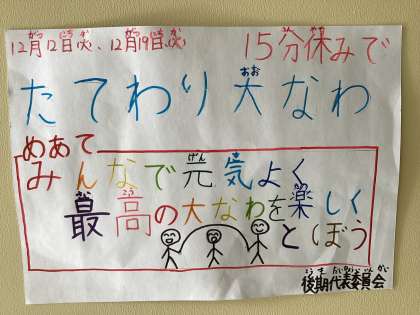 12月12日(火)、12月19日(火) 15分休みで
たてわり大なわ
めあて
みんなで元気よく
最高の大なわを楽しく
とぼう
後期代表委員会